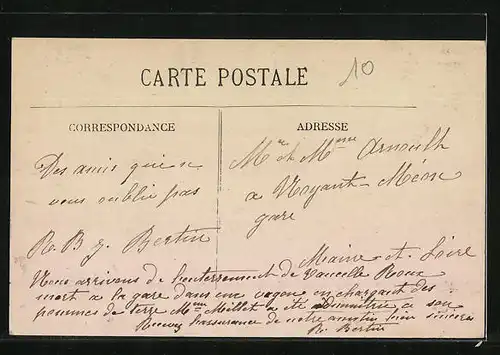 CARTE POSTALE
10
CORRESPONDANCE
ADRESSE
Mr et Mme Arnault
a Noyant-Méon
gare
Maine-et-Loire
Des amis qui ne
vous oublie pas
R. B Bertin
Nous arrivons de l'enterrement de Roux
mort a la gare dans une vagon en chargant des
pommes de terre Mme Millet a été a son
Recevez l'assurance de notre amitié bien sincère
R. Bertin